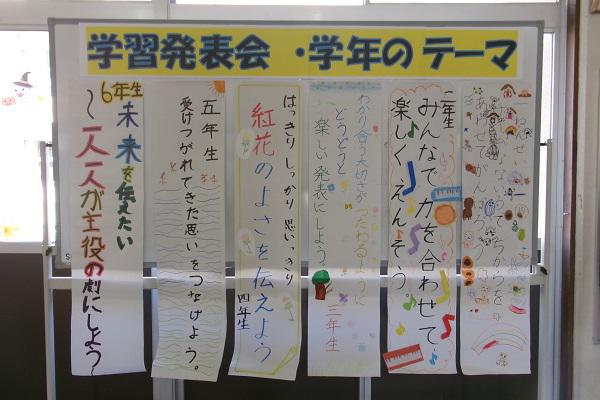 学習発表会 ・学年のテーマ
一ねんせい
ちからを
あわせてがんばろう
二年生
みんなで力を合わせて
楽しくえんそう。
わかり合う大切さがつたわるように
どうどうと
楽しい発表にしよう。
三年生
はっきりしっかり思いっきり
紅花のよさを伝えよう
四年生
五年生
受けつがれてきた思いをつなげよう。
6年生
未来を伝えたい
〜一人一人が主役の劇にしよう〜